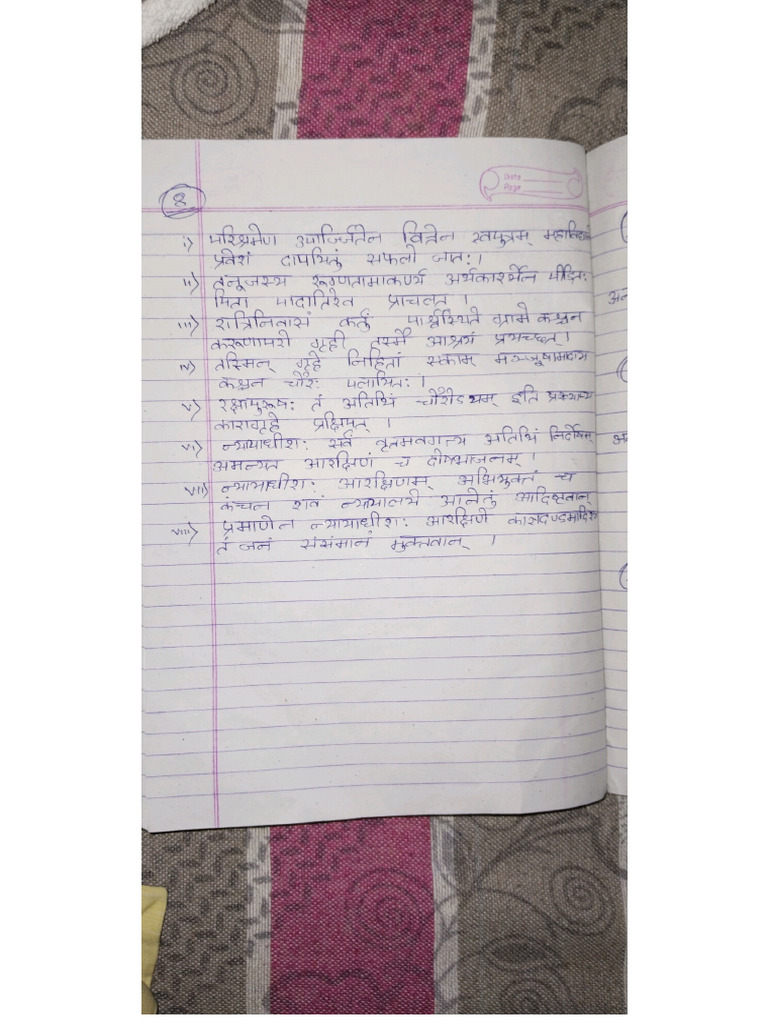 Date
Page
8
i) परिश्रमेण उपार्ज्जितेन वित्तेन स्वपुत्रम्
प्रवेशं दापयितुं सफलो जातः।
ii) तनूजस्य रूग्णतामाकर्ण्य पीडितः
पिता पादातिरेव प्राचलत्।
iii) रात्रिनिवासं कर्तुं पार्श्वस्थिते ग्रामे कश्चन
करूणापरो गृही तस्मै आश्रयं प्रायच्छत्।
iv) तस्मिन् गृहे निहितां एकाम् मञ्जूषामादाय
कश्चन चौरः पलायितः।
v) रक्षापुरूषः तं अतिथिं चौरोऽयम् इति प्रख्याप्य
कारागृहे प्रक्षिपत्।
vi) न्यायाधीशः सर्वं वृतमवगत्य अतिथिं निर्दोषम्
अमन्यत आरक्षिणं च दोषभाजनम्।
vii) न्यायाधीशः आरक्षिणम् अभियुक्तं च
कंचन शवं न्यायालये आनेतुं आदिष्टवान्
viii) प्रमाणेन न्यायाधीशः आरक्षिणे
तं जनं संसंमानं मुक्तवान्।